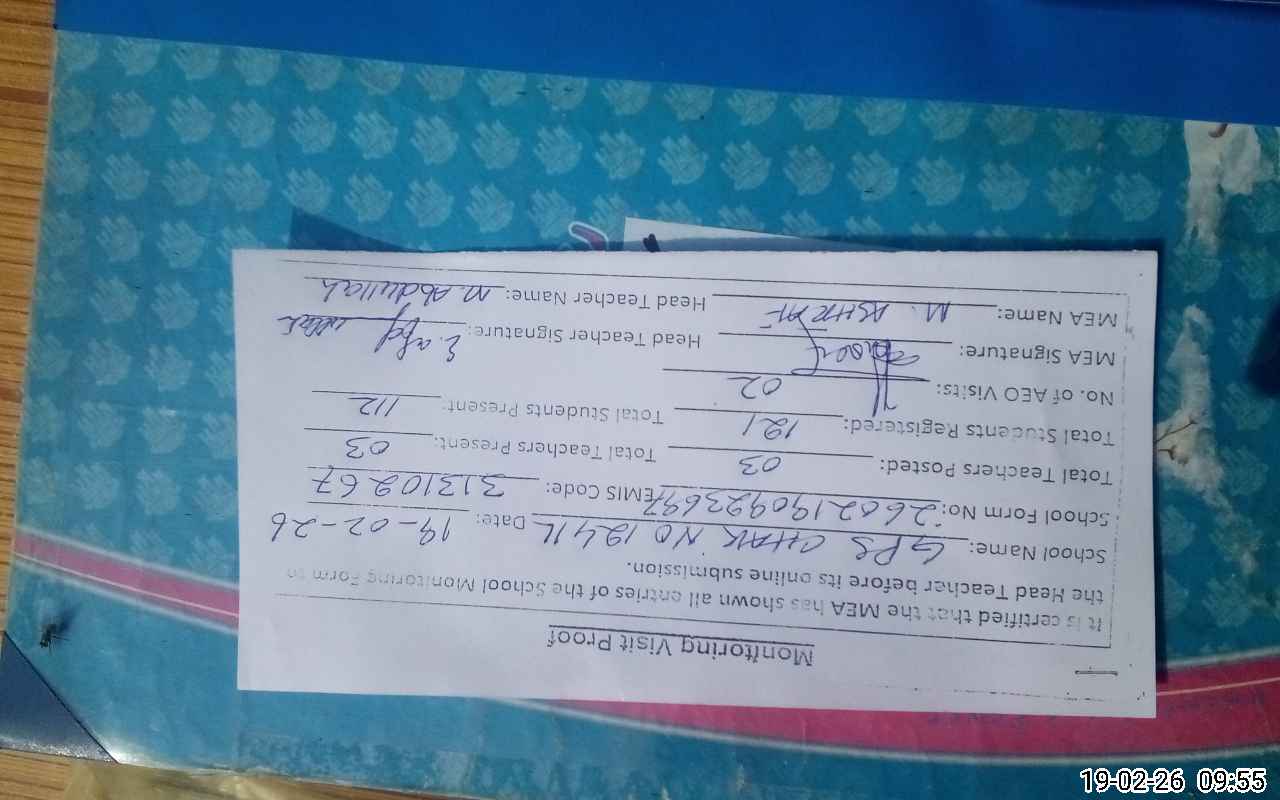 Monitoring Visit Proof
It is certified that the MEA has shown all entries of the School Monitoring Form to
the Head Teacher before its online submission.
School Name: GPS CHAK NO 124 1L Date: 19-02-26
School Form No: 260219092369 EMIS Code: 31310267
Total Teachers Posted: 03 Total Teachers Present: 03
Total Students Registered: 121 Total Students Present: 112
No. of AEO Visits: 02
MEA Signature: Head Teacher Signature:
MEA Name: M. ASHRAF Head Teacher Name: M. Abdullah
19-02-26 09:55